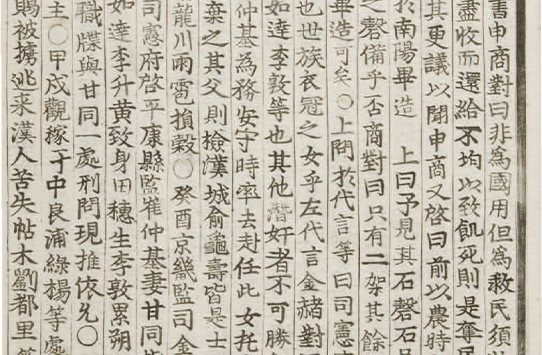 書申商對曰非為國用但為救民須
盡收而還給不均以致飢死則是奪
其更議以聞申商又啓曰前以農時
於南陽畢造　上曰予見其石磬石
之磬備乎否商對曰只有二架其餘
畢造可矣○上問於代言等曰司憲
也世族衣冠之女乎左代言金赭對
如達李敦等也其他潛奸者不可勝
仲基為務安守時率去赴任此女托
棄之其父則檢漢城俞龜壽皆是士
龍川雨雹損穀○癸酉京畿監司金
司憲府啓平康縣監崔仲基妻甘同
如達李升黃致身田穗生李敦累朔
職牒與甘同一處刑問現推依允○
主○甲戌觀稼于中良浦綠楊等處
賜被擄逃来漢人苦失帖木劉都里